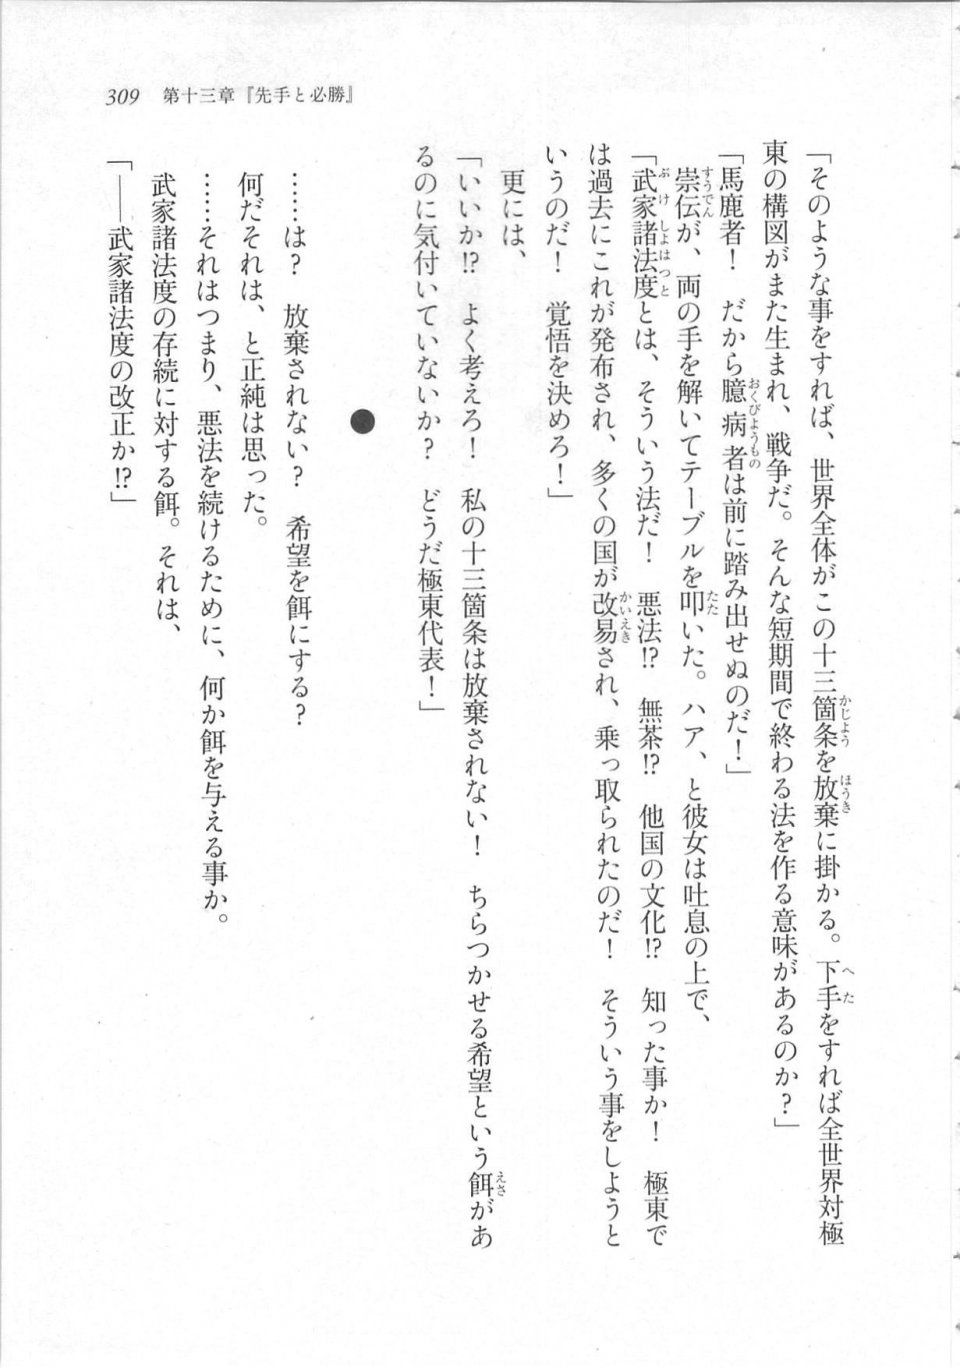 309　第十三章『先手と必勝』
「そのような事をすれば、世界全体がこの十三箇条を放棄に掛かる。下手をすれば全世界対極
東の構図がまた生まれ、戦争だ。そんな短期間で終わる法を作る意味があるのか？」
「馬鹿者！　だから臆病者は前に踏み出せぬのだ！」
　崇伝が、両の手を解いてテーブルを叩いた。ハア、と彼女は吐息の上で、
「武家諸法度とは、そういう法だ！　悪法⁉　無茶⁉　他国の文化⁉　知った事か！　極東で
は過去にこれが発布され、多くの国が改易され、乗っ取られたのだ！　そういう事をしようと
いうのだ！　覚悟を決めろ！」
　更には、
「いいか⁉　よく考えろ！　私の十三箇条は放棄されない！　ちらつかせる希望という餌があ
るのに気付いていないか？　どうだ極東代表！」
●
　……は？　放棄されない？　希望を餌にする？
　何だそれは、と正純は思った。
　……それはつまり、悪法を続けるために、何か餌を与える事か。
　武家諸法度の存続に対する餌。それは、
「――武家諸法度の改正か⁉」